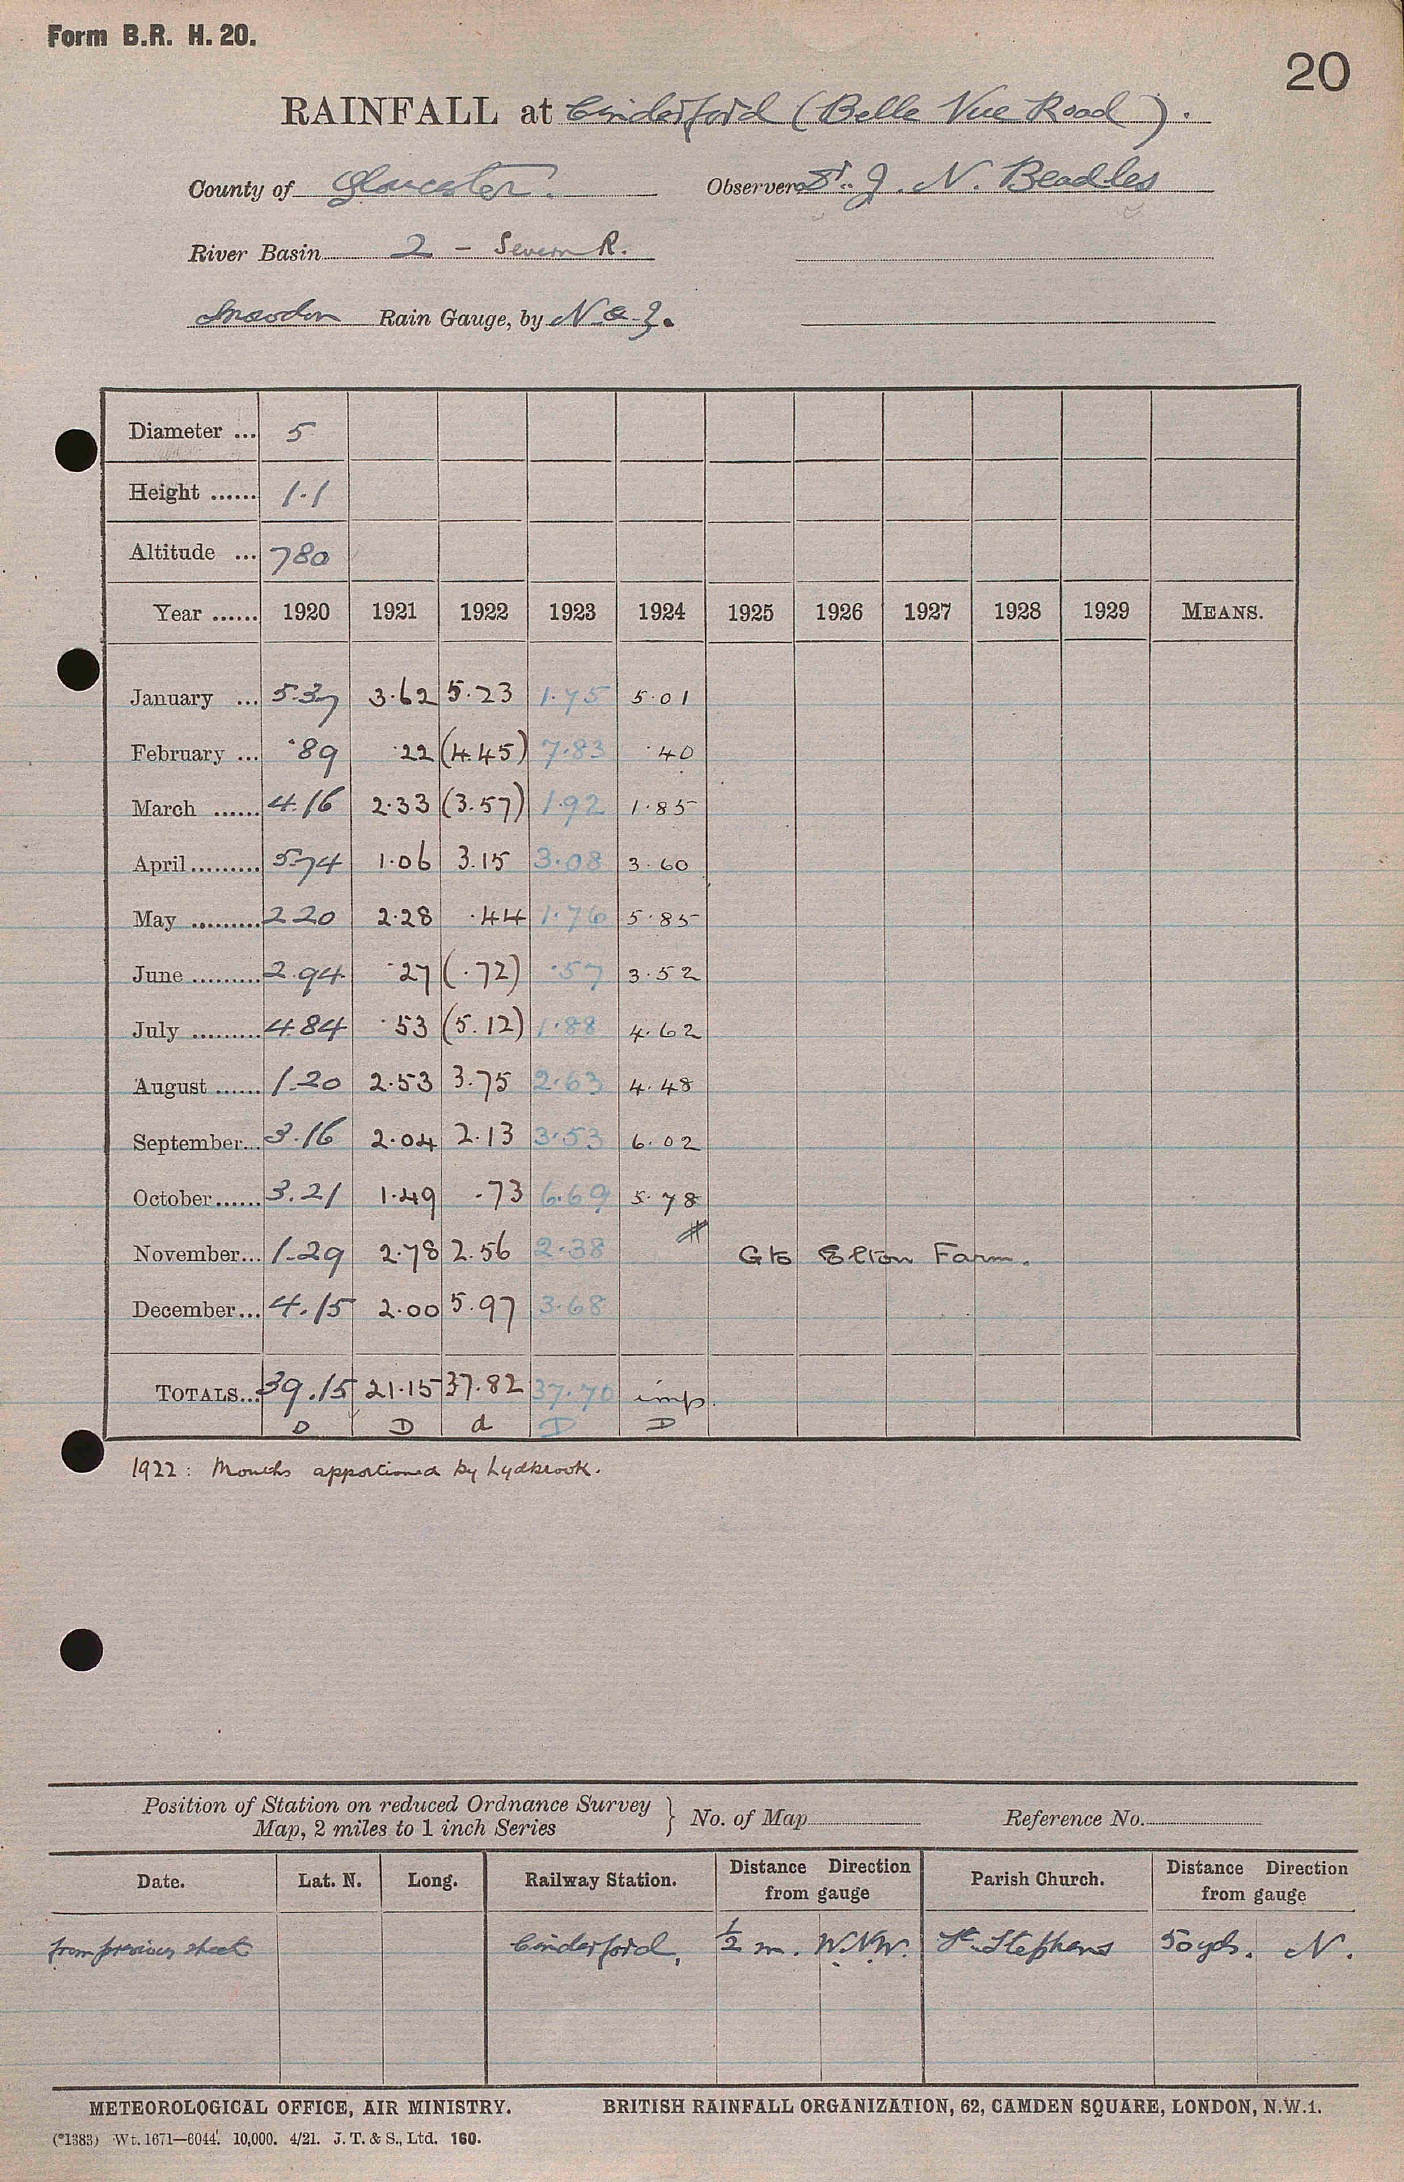 Form B.R. H. 20.
20
RAINFALL at Cinderford (Belle Vue Road).
County of Gloucester. Observer Dr. J. N. Beadles
River Basin 2 - Severn R.
Snowdon Rain Gauge, by N & Z.
Diameter ... 5
Height ...... 1.1
Altitude ... 780
Year ...... 1920 1921 1922 1923 1924 1925 1926 1927 1928 1929 MEANS.
January ... 5.37 3.62 5.23 1.75 5.01
February ... .89 .22 (4.45) 7.83 .40
March ...... 4.16 2.33 (3.57) 1.92 1.85
April ......... 5.74 1.06 3.15 3.08 3.60
May ......... 2.20 2.28 .44 1.76 5.85
June ......... 2.94 .27 (.72) .57 3.52
July ......... 4.84 .53 (5.12) 1.88 4.62
August ...... 1.20 2.53 3.75 2.63 4.48
September... 3.16 2.04 2.13 3.53 6.02
October...... 3.21 1.49 .73 6.69 5.78
November... 1.29 2.78 2.56 2.38 # G to Elton Farm.
December... 4.15 2.00 5.97 3.68
TOTALS... 39.15 21.15 37.82 37.70 imp.
D D d D D
1922: Months apportioned by Lydbrook.
Position of Station on reduced Ordnance Survey
Map, 2 miles to 1 inch Series } No. of Map Reference No.
Date. Lat. N. Long. Railway Station. Distance Direction from gauge Parish Church. Distance Direction from gauge
from previous sheet Cinderford, ½ m. W.N.W. St. Stephens 50 yds. N.
METEOROLOGICAL OFFICE, AIR MINISTRY. BRITISH RAINFALL ORGANIZATION, 62, CAMDEN SQUARE, LONDON, N.W.1.
(*1383) Wt. 1671—6044. 10,000. 4/21. J. T. & S., Ltd. 160.